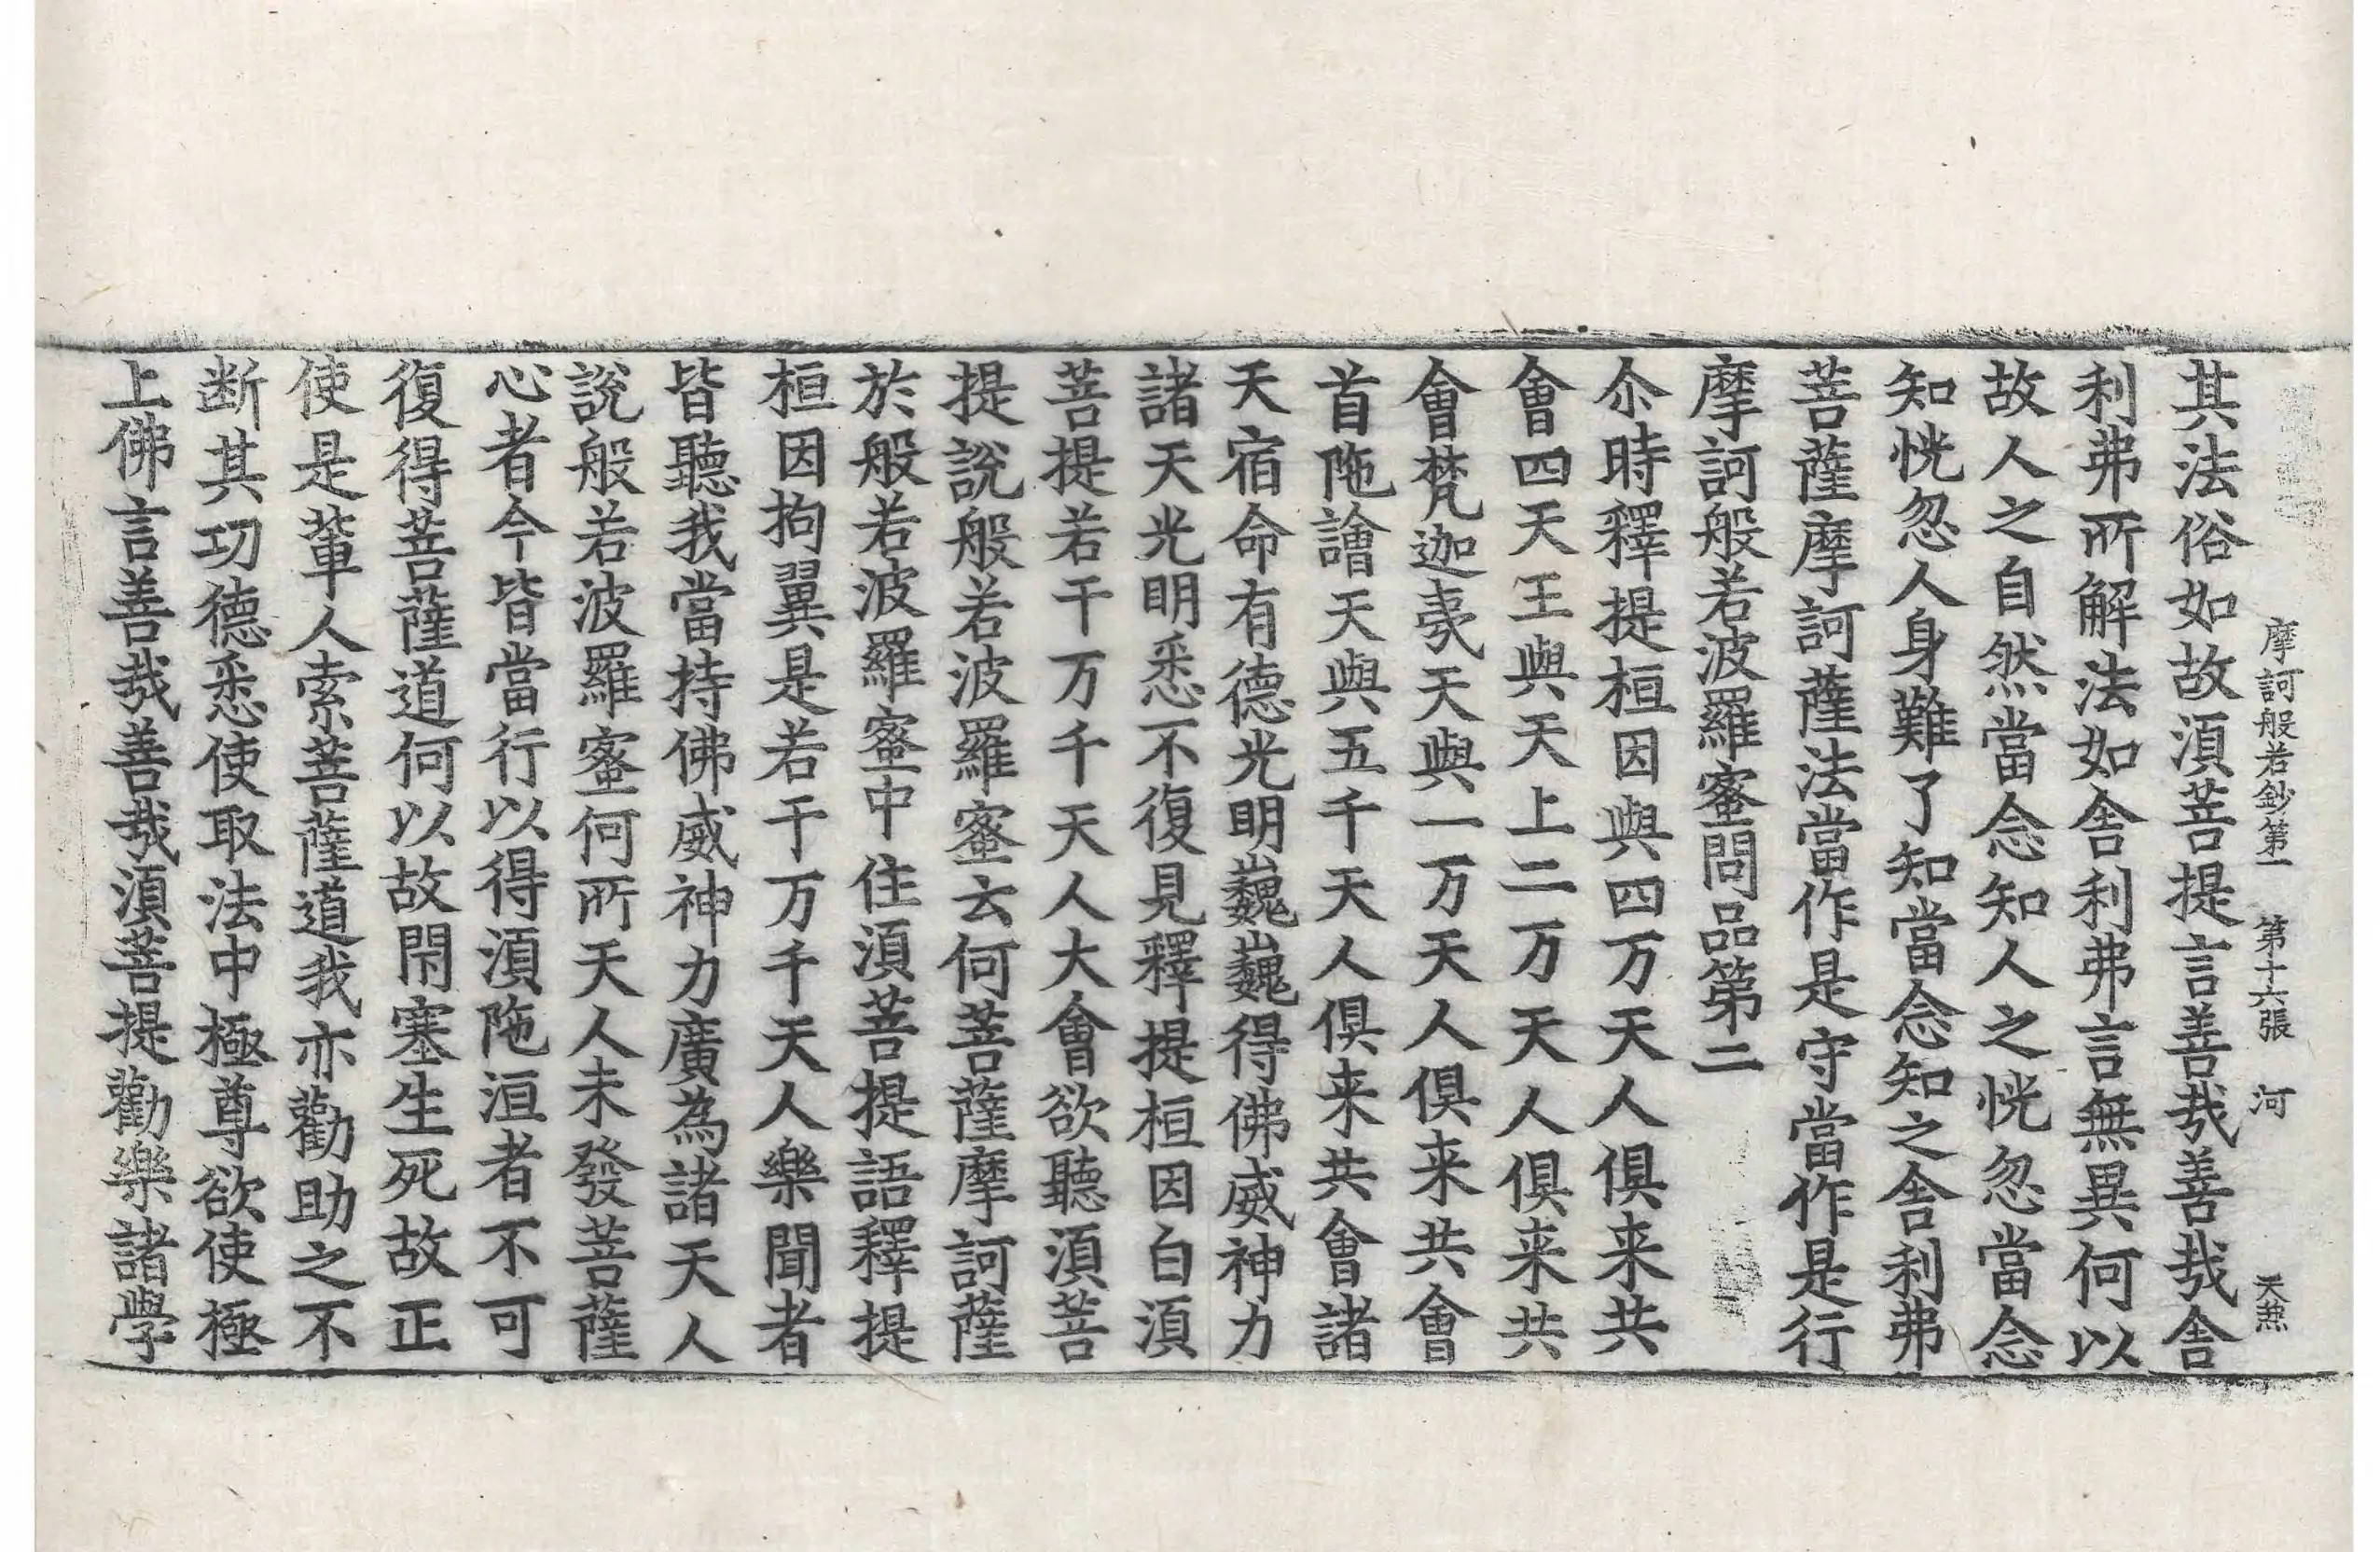 摩訶般若鈔第一 第十六張 河 天然
其法俗如故湏菩提言善㢤善㢤舎
利弗所解法如舎利弗言無異何以
故人之自然當念知人之恍忽當念
知恍忽人身難了知當念知之舎利弗
菩薩摩訶薩法當作是守當作是行
摩訶般若波羅蜜問品第二
尒時釋提桓因與四万天人俱来共
會四天王與天上二万天人俱来共
會梵迦夷天與一万天人俱来共會
首陁譮天與五千天人俱来共會諸
天宿命有德光明巍巍得佛威神力
諸天光明悉不復見釋提桓因白湏
菩提若干万千天人大會欲聽湏菩
提說般若波羅蜜云何菩薩摩訶薩
於般若波羅蜜中住湏菩提語釋提
桓因拘翼是若干万千天人樂聞者
皆聽我當持佛威神力廣為諸天人
說般若波羅蜜何所天人未發菩薩
心者今皆當行以得湏陁洹者不可
復得菩薩道何以故閇塞生死故正
使是軰人索菩薩道我亦勸助之不
断其功德悉使取法中極尊欲使極
上佛言善㢤善㢤湏菩提勸樂諸學